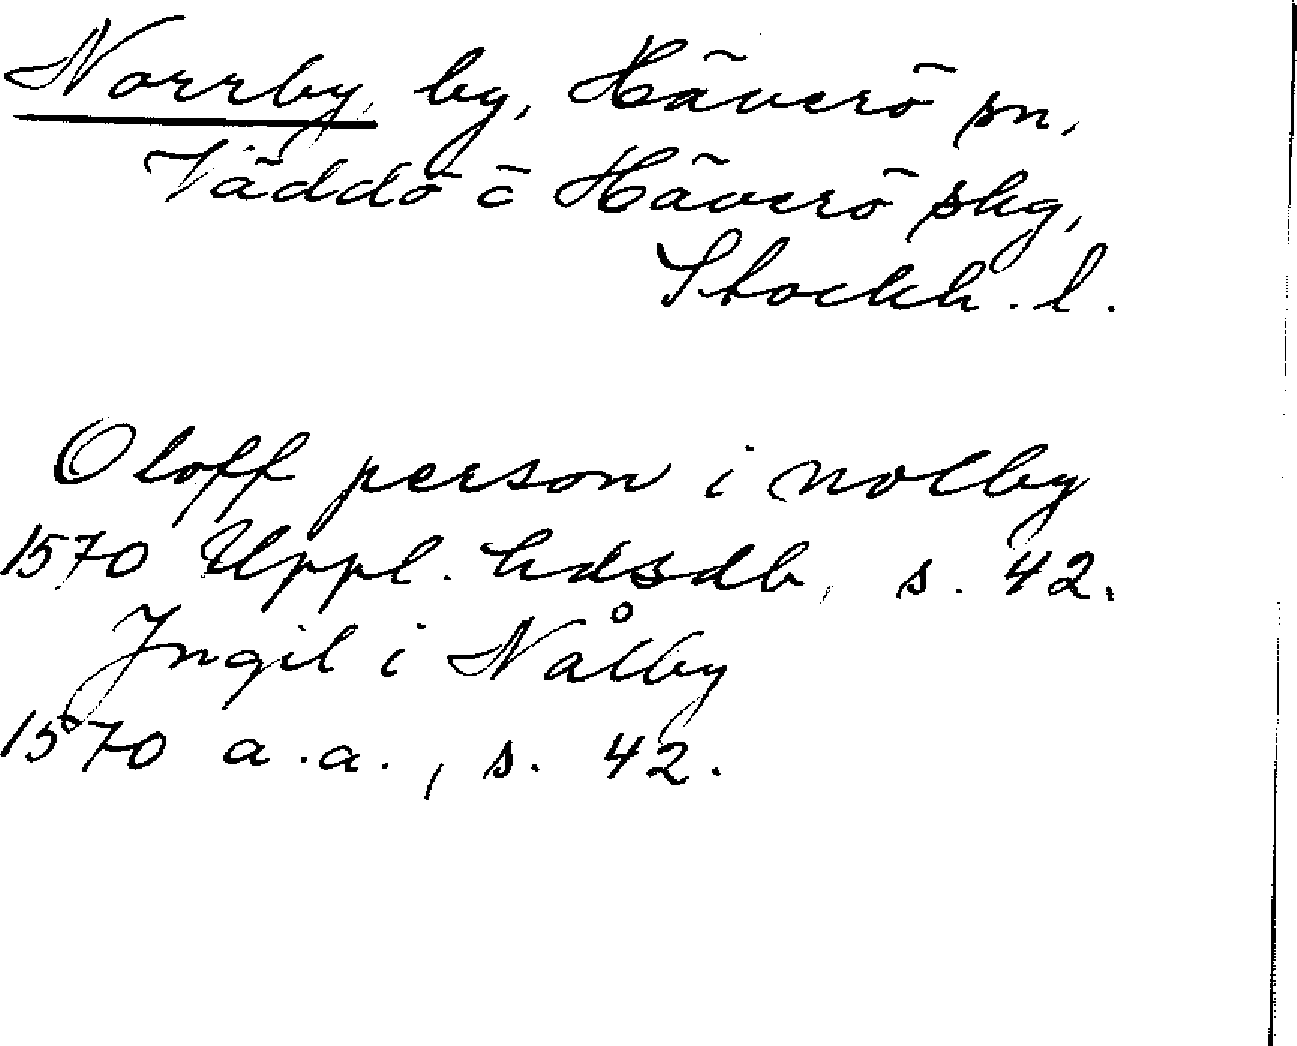 Norrby, by, Häverö sn,
Väddö o Häverö skg,
Stockh. l.
Oloff person i nolby
1570 Uppl. hdsdb, s. 42.
Ingil i Nålby
1570 a.a., s. 42.